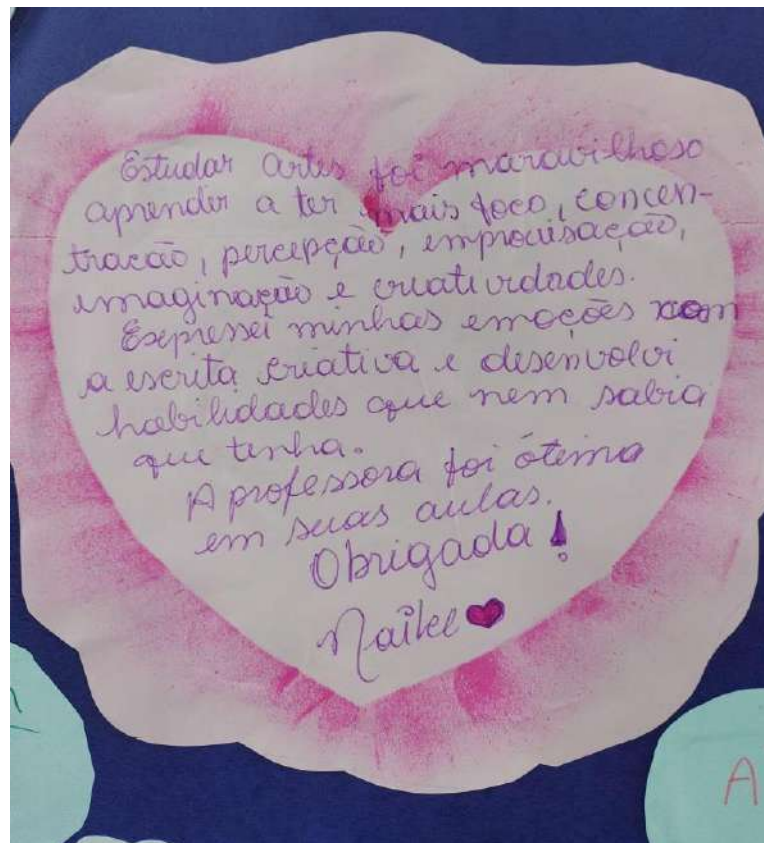 Estudar Artes foi maravilhoso
aprender a ter mais foco, concen-
tracão, percepção, improvisação,
imaginação e criatividades.
Expressei minhas emoções com
a escrita criativa e desenvolvi
habilidades que nem sabia
que tenha.
A professora foi ótima
em suas aulas.
Obrigada!
A